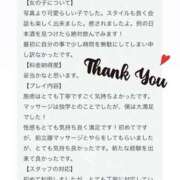 【女の子について】
写真より可愛らしい子でした。スタイルも良く会
話も楽しく出来ました。癒されましたよ。例の日
本酒を見つけたら絶対飲んでみます！
最初に自分の事で少し時間を無駄にしてしまい申
し訳なかったです。
【料金納得度】
妥当かなと思います。
【プレイ内容】
施術はとても丁寧ですごく気持ちよかったです。
マッサージは独学とのことでしたが、僕は大満足
でした！
性感もとても気持ち良く満足です！初めてです
が、前立腺マッサージやらをしてもらいました
が、とても気持ち良かったです。新たな経験を出
来て良かったです。
【スタッフの対応】
Thank You